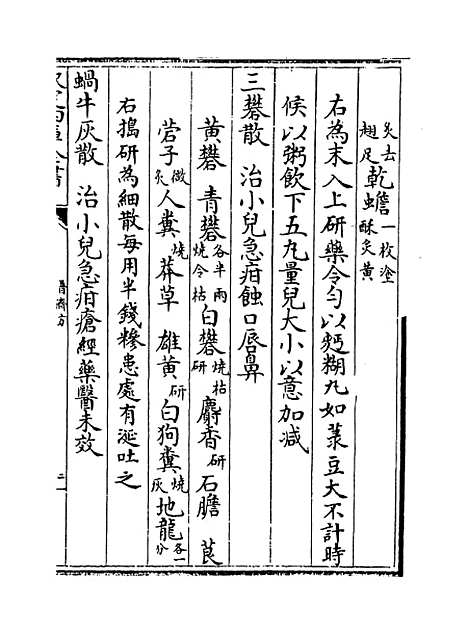 炙去翅足乾蟾一枚塗酥炙黄
右為末入上研藥令匀以麪糊丸如菉豆大不計時
候以粥飲下五丸量兒大小以意加减
三礬散　治小兒急疳蝕口唇鼻
黄礬　青礬各半兩燒令枯白礬燒枯研麝香研石膽　莨
菪子微炙人糞燒莽草　雄黄研白狗糞燒灰地龍各一分
右搗研為細散每用半錢糝患處有涎吐之
蝸牛灰散　治小兒急疳瘡經藥醫未效
普濟方